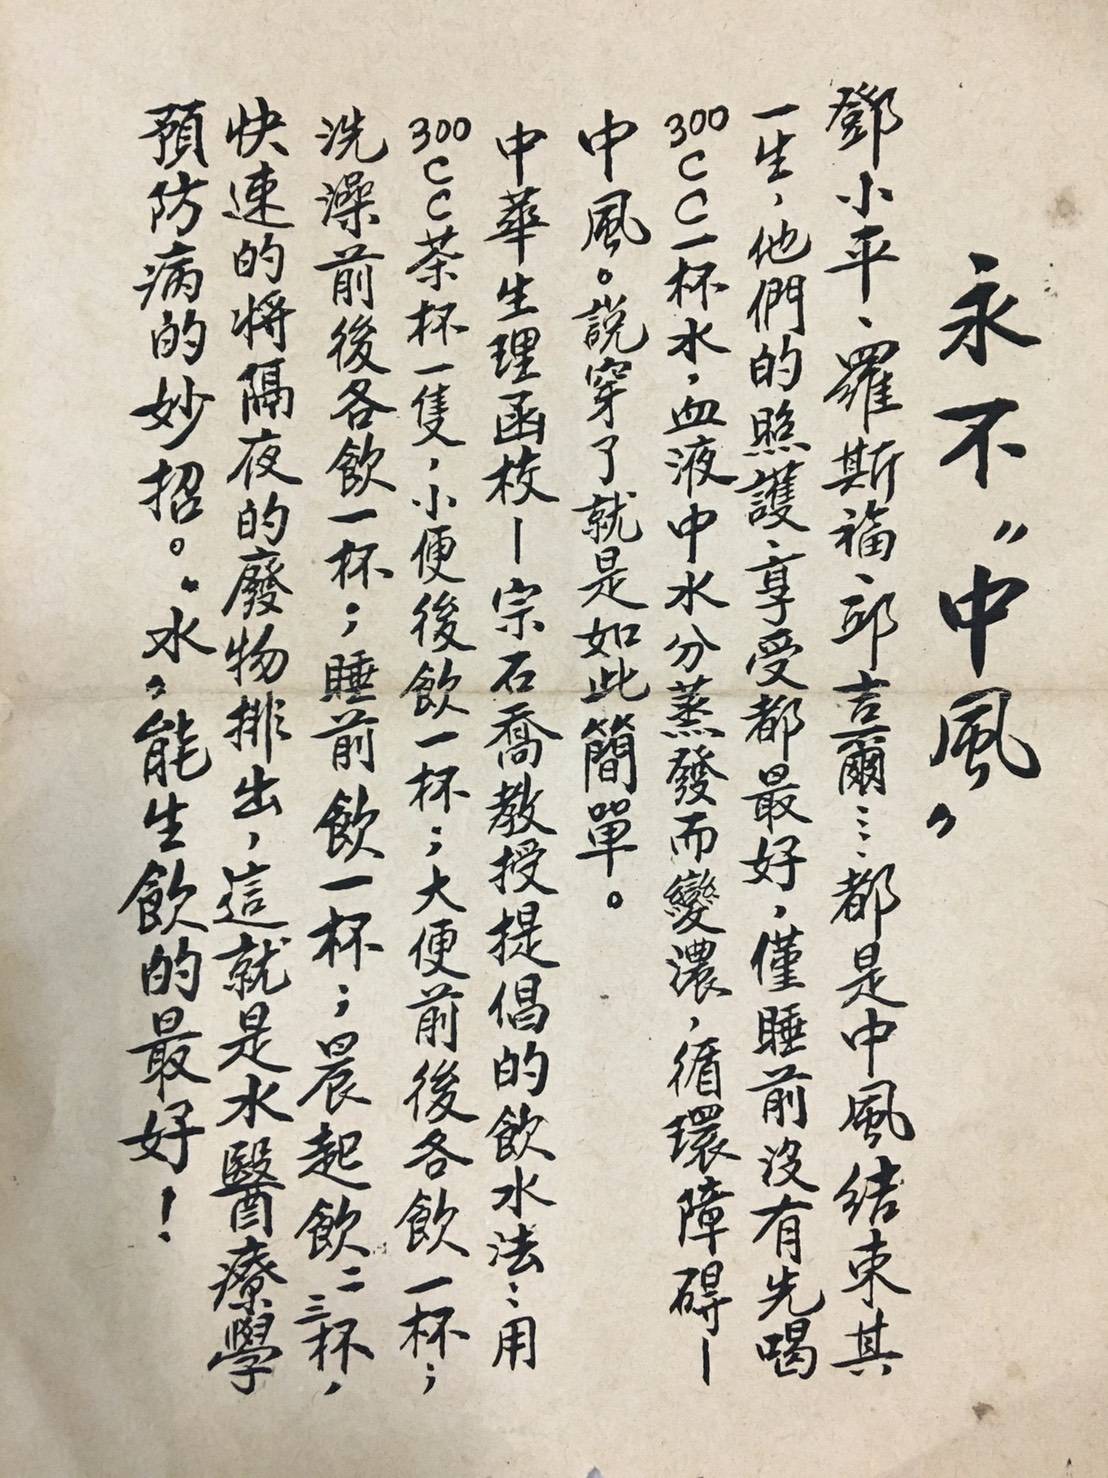 永不〝中風〞
鄧小平、羅斯福、邱吉爾⋯都是中風結束其
一生，他們的照護、享受都最好，僅睡前沒有先喝
300CC一杯水，血液中水分蒸發而變濃，循環障碍—
中風。說穿了就是如此簡單。
中華生理函校—宗石喬教授提倡的飲水法：用
300CC茶杯一隻，小便後飲一杯；大便前後各飲一杯；
洗澡前後各飲一杯；睡前飲一杯；晨起飲二三杯，
快速的將隔夜的廢物排出，這就是水醫療學
預防病的妙招。〝水〞能生飲的最好！